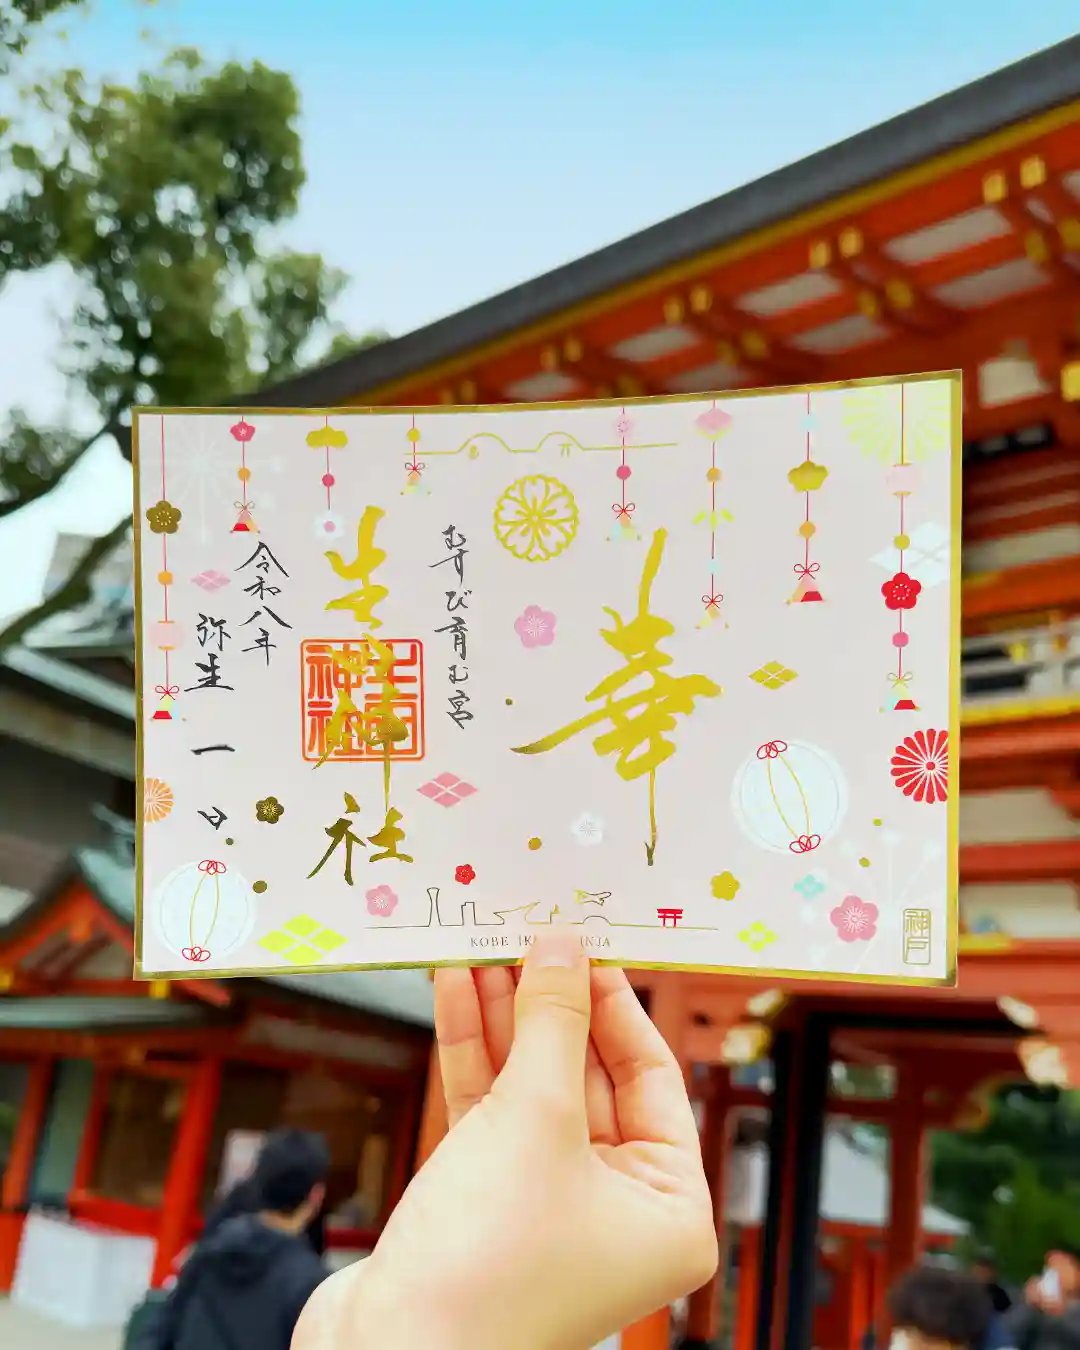 華
むすび育む宮
生田神社
生田神社
令和八年
弥生 一 日
KOBE IK NJA
神戸